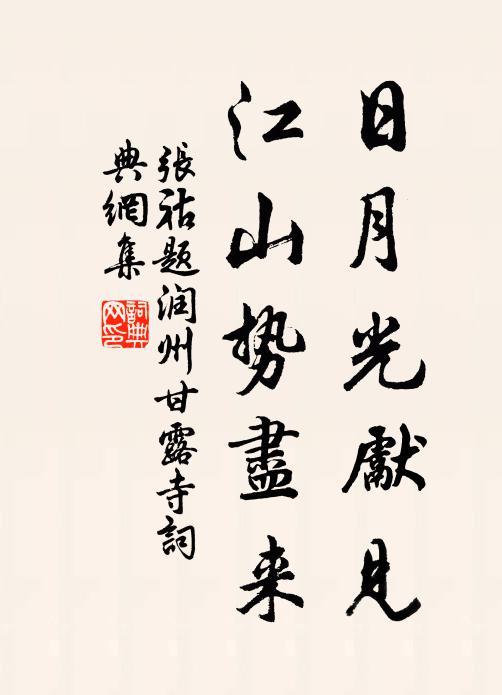 日月光獻見
江山势盡来
張祜題润州甘露寺詞
典網集
詞典
网印